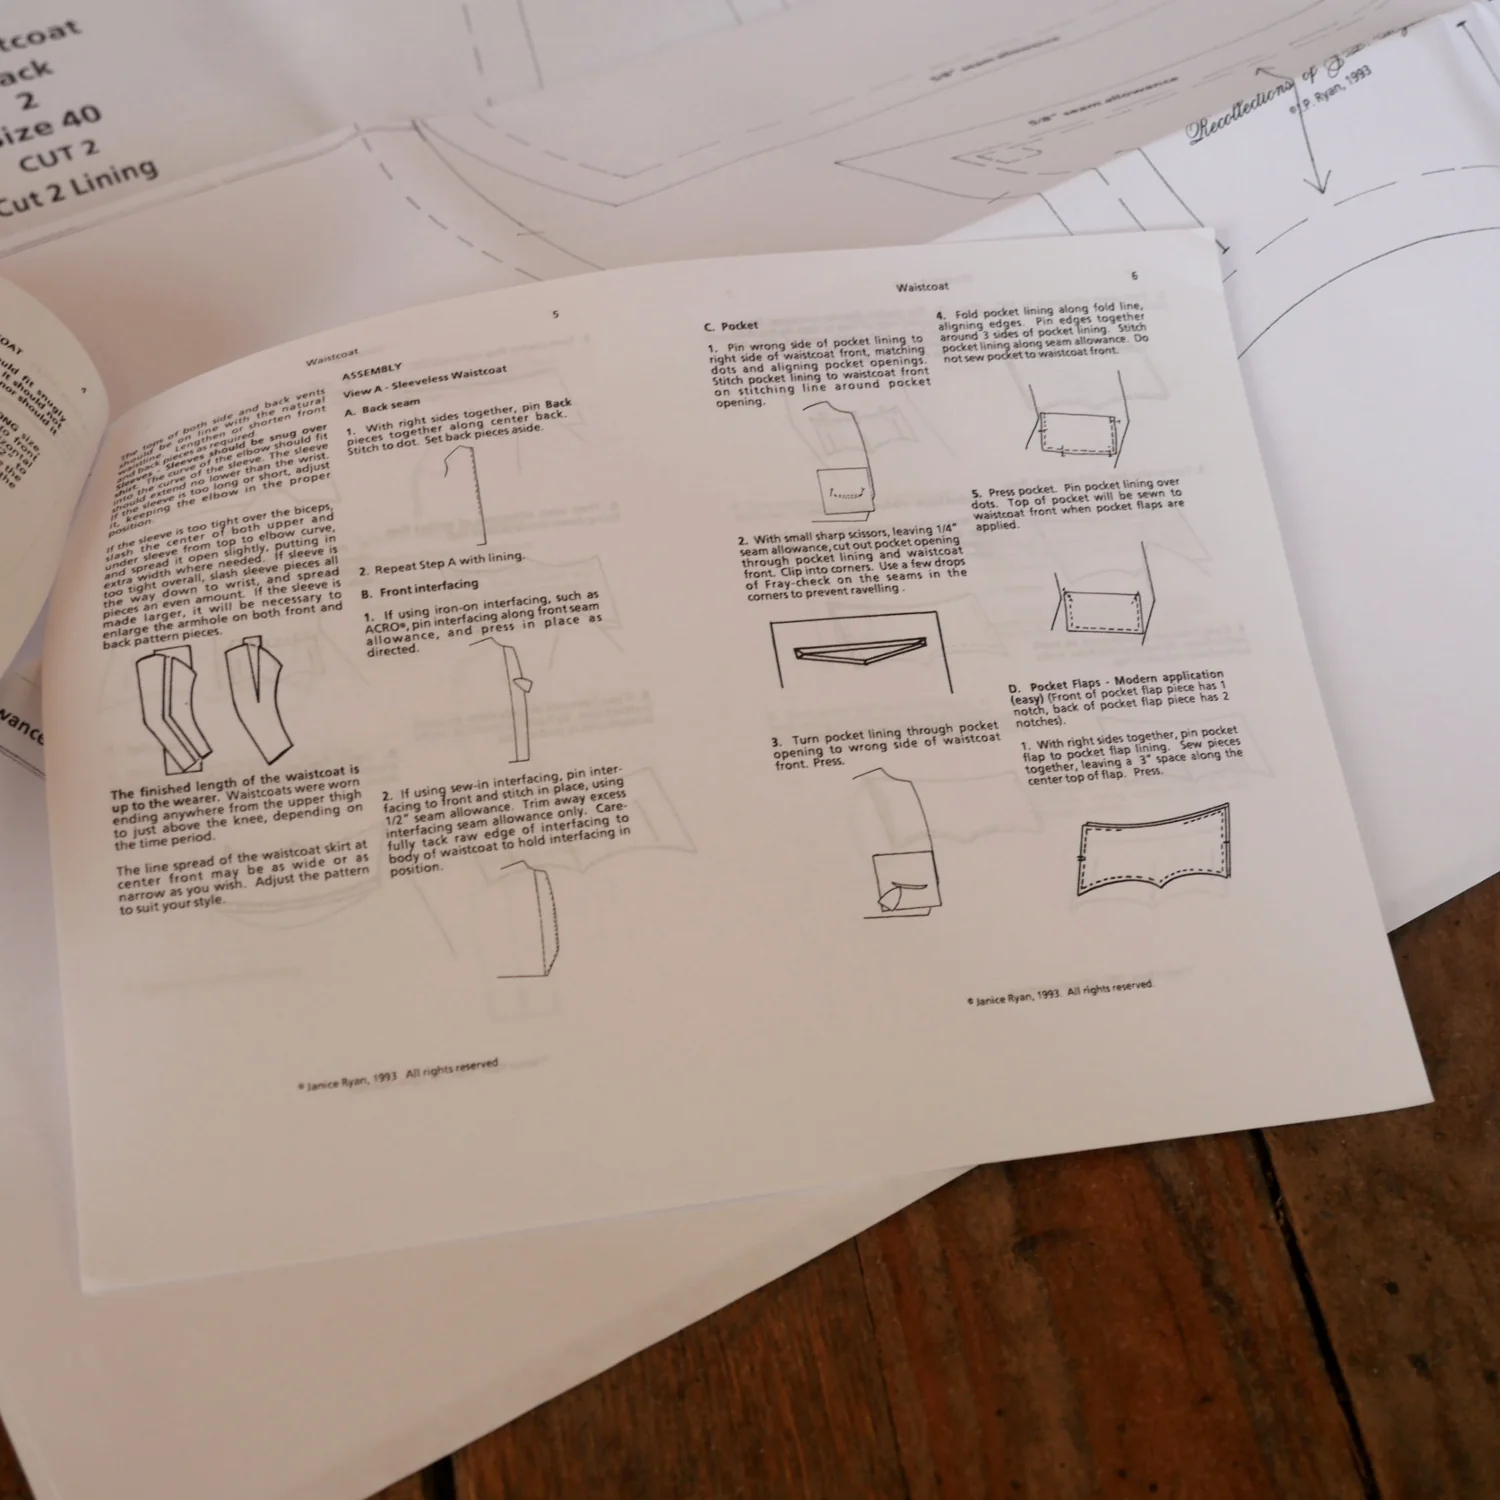 tcoat
ack
2
size 40
CUT 2
Cut 2 Lining
5/8" seam allowance
5/8" seam allowance
Recollections of
© J.P. Ryan, 1993
OAT
uld fit snugly
it should not
nor should it
ONG size,
to front
zontal
to
the
the
wance
5
Waistcoat
The tops of both side and back vents
should be on line with the natural
waistline. Lengthen or shorten front
and back pieces as required.
Sleeves - Sleeves should be snug over
shirt. The curve of the elbow should fit
into the curve of the sleeve. The sleeve
should extend no lower than the wrist.
If the sleeve is too long or short, adjust
it, keeping the elbow in the proper
position.
If the sleeve is too tight over the biceps,
slash the center of both upper and
under sleeve from top to elbow curve,
and spread it open slightly, putting in
extra width where needed. If sleeve is
too tight overall, slash sleeve pieces all
the way down to wrist, and spread
pieces an even amount. If the sleeve is
made larger, it will be necessary to
enlarge the armhole on both front and
back pattern pieces.
The finished length of the waistcoat is
up to the wearer. Waistcoats were worn
ending anywhere from the upper thigh
to just above the knee, depending on
the time period.
The line spread of the waistcoat skirt at
center front may be as wide or as
narrow as you wish. Adjust the pattern
to suit your style.
ASSEMBLY
View A - Sleeveless Waistcoat
A. Back seam
1. With right sides together, pin Back
pieces together along center back.
Stitch to dot. Set back pieces aside.
2. Repeat Step A with lining.
B. Front interfacing
1. If using iron-on interfacing, such as
ACRO®, pin interfacing along front seam
allowance, and press in place as
directed.
2. If using sew-in interfacing, pin inter-
facing to front and stitch in place, using
1/2" seam allowance. Trim away excess
interfacing seam allowance only. Care-
fully tack raw edge of interfacing to
body of waistcoat to hold interfacing in
position.
© Janice Ryan, 1993 All rights reserved
Waistcoat
6
C. Pocket
1. Pin wrong side of pocket lining to
right side of waistcoat front, matching
dots and aligning pocket openings.
Stitch pocket lining to waistcoat front
on stitching line around pocket
opening.
2. With small sharp scissors, leaving 1/4"
seam allowance, cut out pocket opening
through pocket lining and waistcoat
front. Clip into corners. Use a few drops
of Fray-check on the seams in the
corners to prevent ravelling .
3. Turn pocket lining through pocket
opening to wrong side of waistcoat
front. Press.
4. Fold pocket lining along fold line,
aligning edges. Pin edges together
around 3 sides of pocket lining. Stitch
pocket lining along seam allowance. Do
not sew pocket to waistcoat front.
5. Press pocket. Pin pocket lining over
dots. Top of pocket will be sewn to
waistcoat front when pocket flaps are
applied.
D. Pocket Flaps - Modern application
(easy) (Front of pocket flap piece has 1
notch, back of pocket flap piece has 2
notches).
1. With right sides together, pin pocket
flap to pocket flap lining. Sew pieces
together, leaving a 3" space along the
center top of flap. Press.
© Janice Ryan, 1993. All rights reserved.